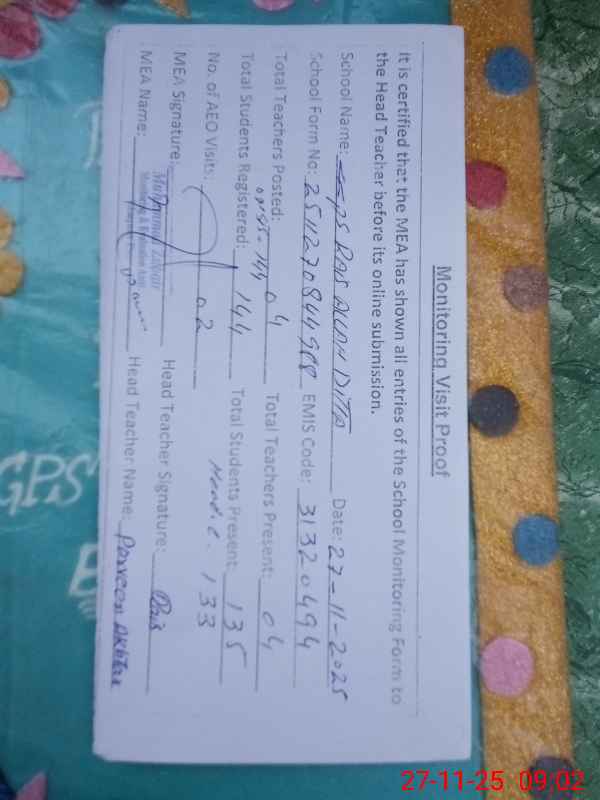 Monitoring Visit Proof
It is certified that the MEA has shown all entries of the School Monitoring Form to
the Head Teacher before its online submission.
School Name: PS Date: 27-11-2025
School Form No: EMIS Code: 31320494
Total Teachers Posted: 04 Total Teachers Present: 04
144
Total Students Registered: 144 Total Students Present: 135
133
No. of AEO Visits: 02
MEA Signature: Head Teacher Signature:
Monitoring & Evaluation
MEA Name: Head Teacher Name: Parveen Akhtar
GPS
27-11-25 09:02